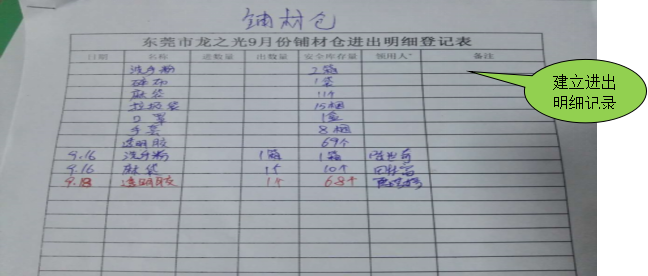 铺材仓
东莞市龙之光9月份铺材仓进出明细登记表
日期 名称 进数量 出数量 安全库存量 领用人 备注
洗手粉 2箱
碎布 1袋
麻袋 11个
垃圾袋 15捆
口罩 1盒
手套 8捆
透明胶 69个
9.16 洗手粉 1箱 1箱
9.16 麻袋 1个 10个
9.18 透明胶 1个 68个
建立进出
明细记录